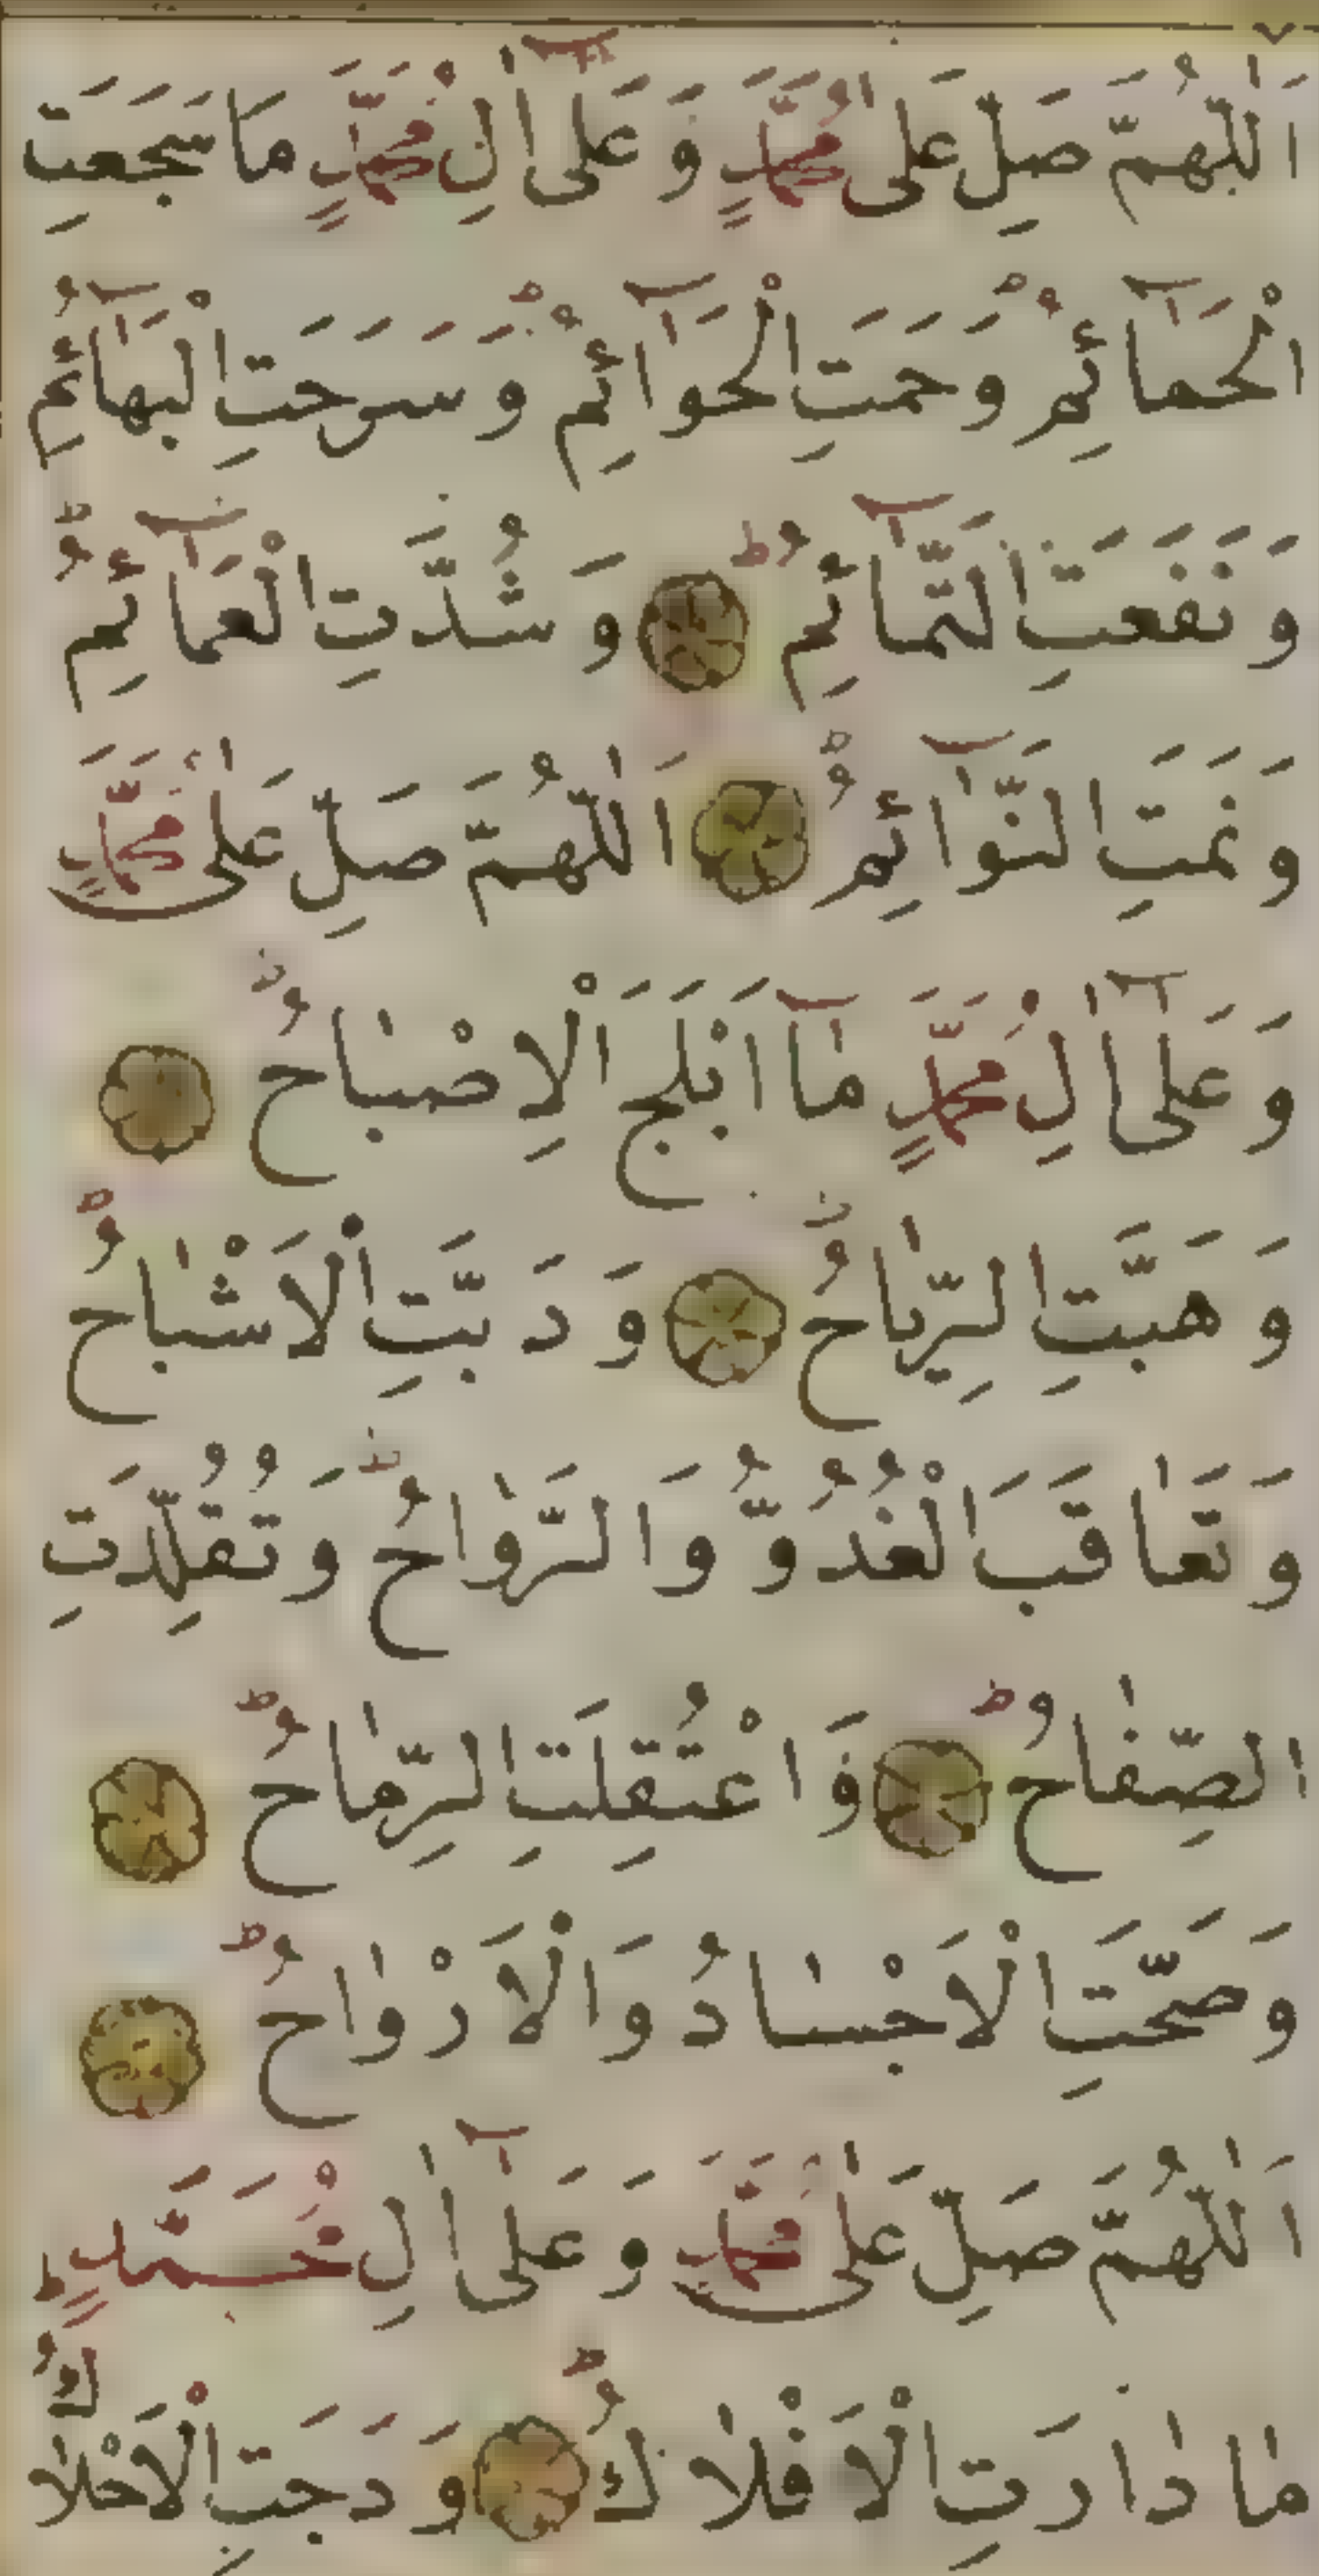 اَللّٰهُمَّ صَلِّ عَلٰى مُحَمَّدٍ وَ عَلٰٓى اٰلِ مُحَمَّدٍ مَا سَجَعَتِ
الْحَمَآئِمُ وَحَمَتِ الْحَوَآئِمُ وَسَرَحَتِ الْبَهَآئِمُ
وَنَفَعَتِ التَّمَآئِمُ وَشُدَّتِ الْعَمَآئِمُ
وَنَمَتِ النَّوَآئِمُ اَللّٰهُمَّ صَلِّ عَلٰى مُحَمَّدٍ
وَعَلٰٓى اٰلِ مُحَمَّدٍ مَآ اَبْلَجَ الْاِصْبَاحُ
وَهَبَّتِ الرِّيَاحُ وَدَبَّتِ الْاَشْبَاحُ
وَتَعَاقَبَ الْغُدُوُّ وَالرَّوَاحُ وَتُقُلِّدَتِ
الصِّفَاحُ وَاعْتُقِلَتِ الرِّمَاحُ
وَصَحَّتِ الْاَجْسَادُ وَالْاَرْوَاحُ
اَللّٰهُمَّ صَلِّ عَلٰى مُحَمَّدٍ وَعَلٰٓى اٰلِ مُحَمَّدٍ
مَادَارَتِ الْاَفْلَاكُ وَدَجَتِ الْاَحْلَاكُ